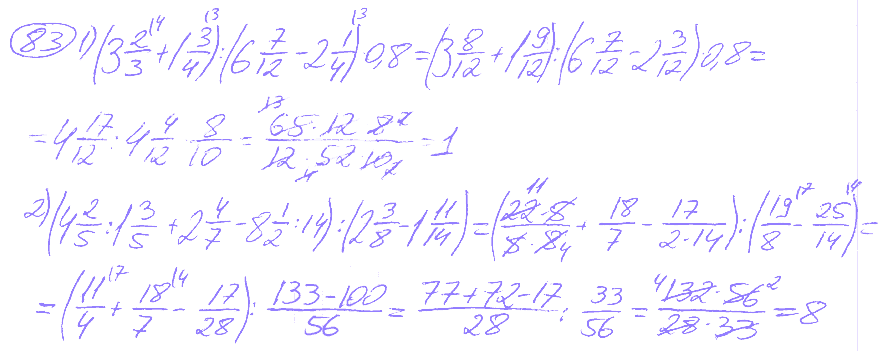 83 1) (3 2/3 + 1 3/4) : (6 7/12 - 2 1/4) 0,8 = (3 8/12 + 1 9/12) : (6 7/12 - 2 3/12) 0,8 =
= 4 17/12 : 4 4/12 · 8/10 = (65 · 12 · 8)/(12 · 52 · 10) = 1
2) (4 2/5 : 1 3/5 + 2 4/7 - 8 1/2 : 14) : (2 3/8 - 1 11/14) = ((22 · 5)/(5 · 8) + 18/7 - 17/(2 · 14)) : (19/8 - 25/14) =
= (11/4 + 18/7 - 17/28) : (133 - 100)/56 = (77 + 72 - 17)/28 : 33/56 = (132 · 56)/(28 · 33) = 8